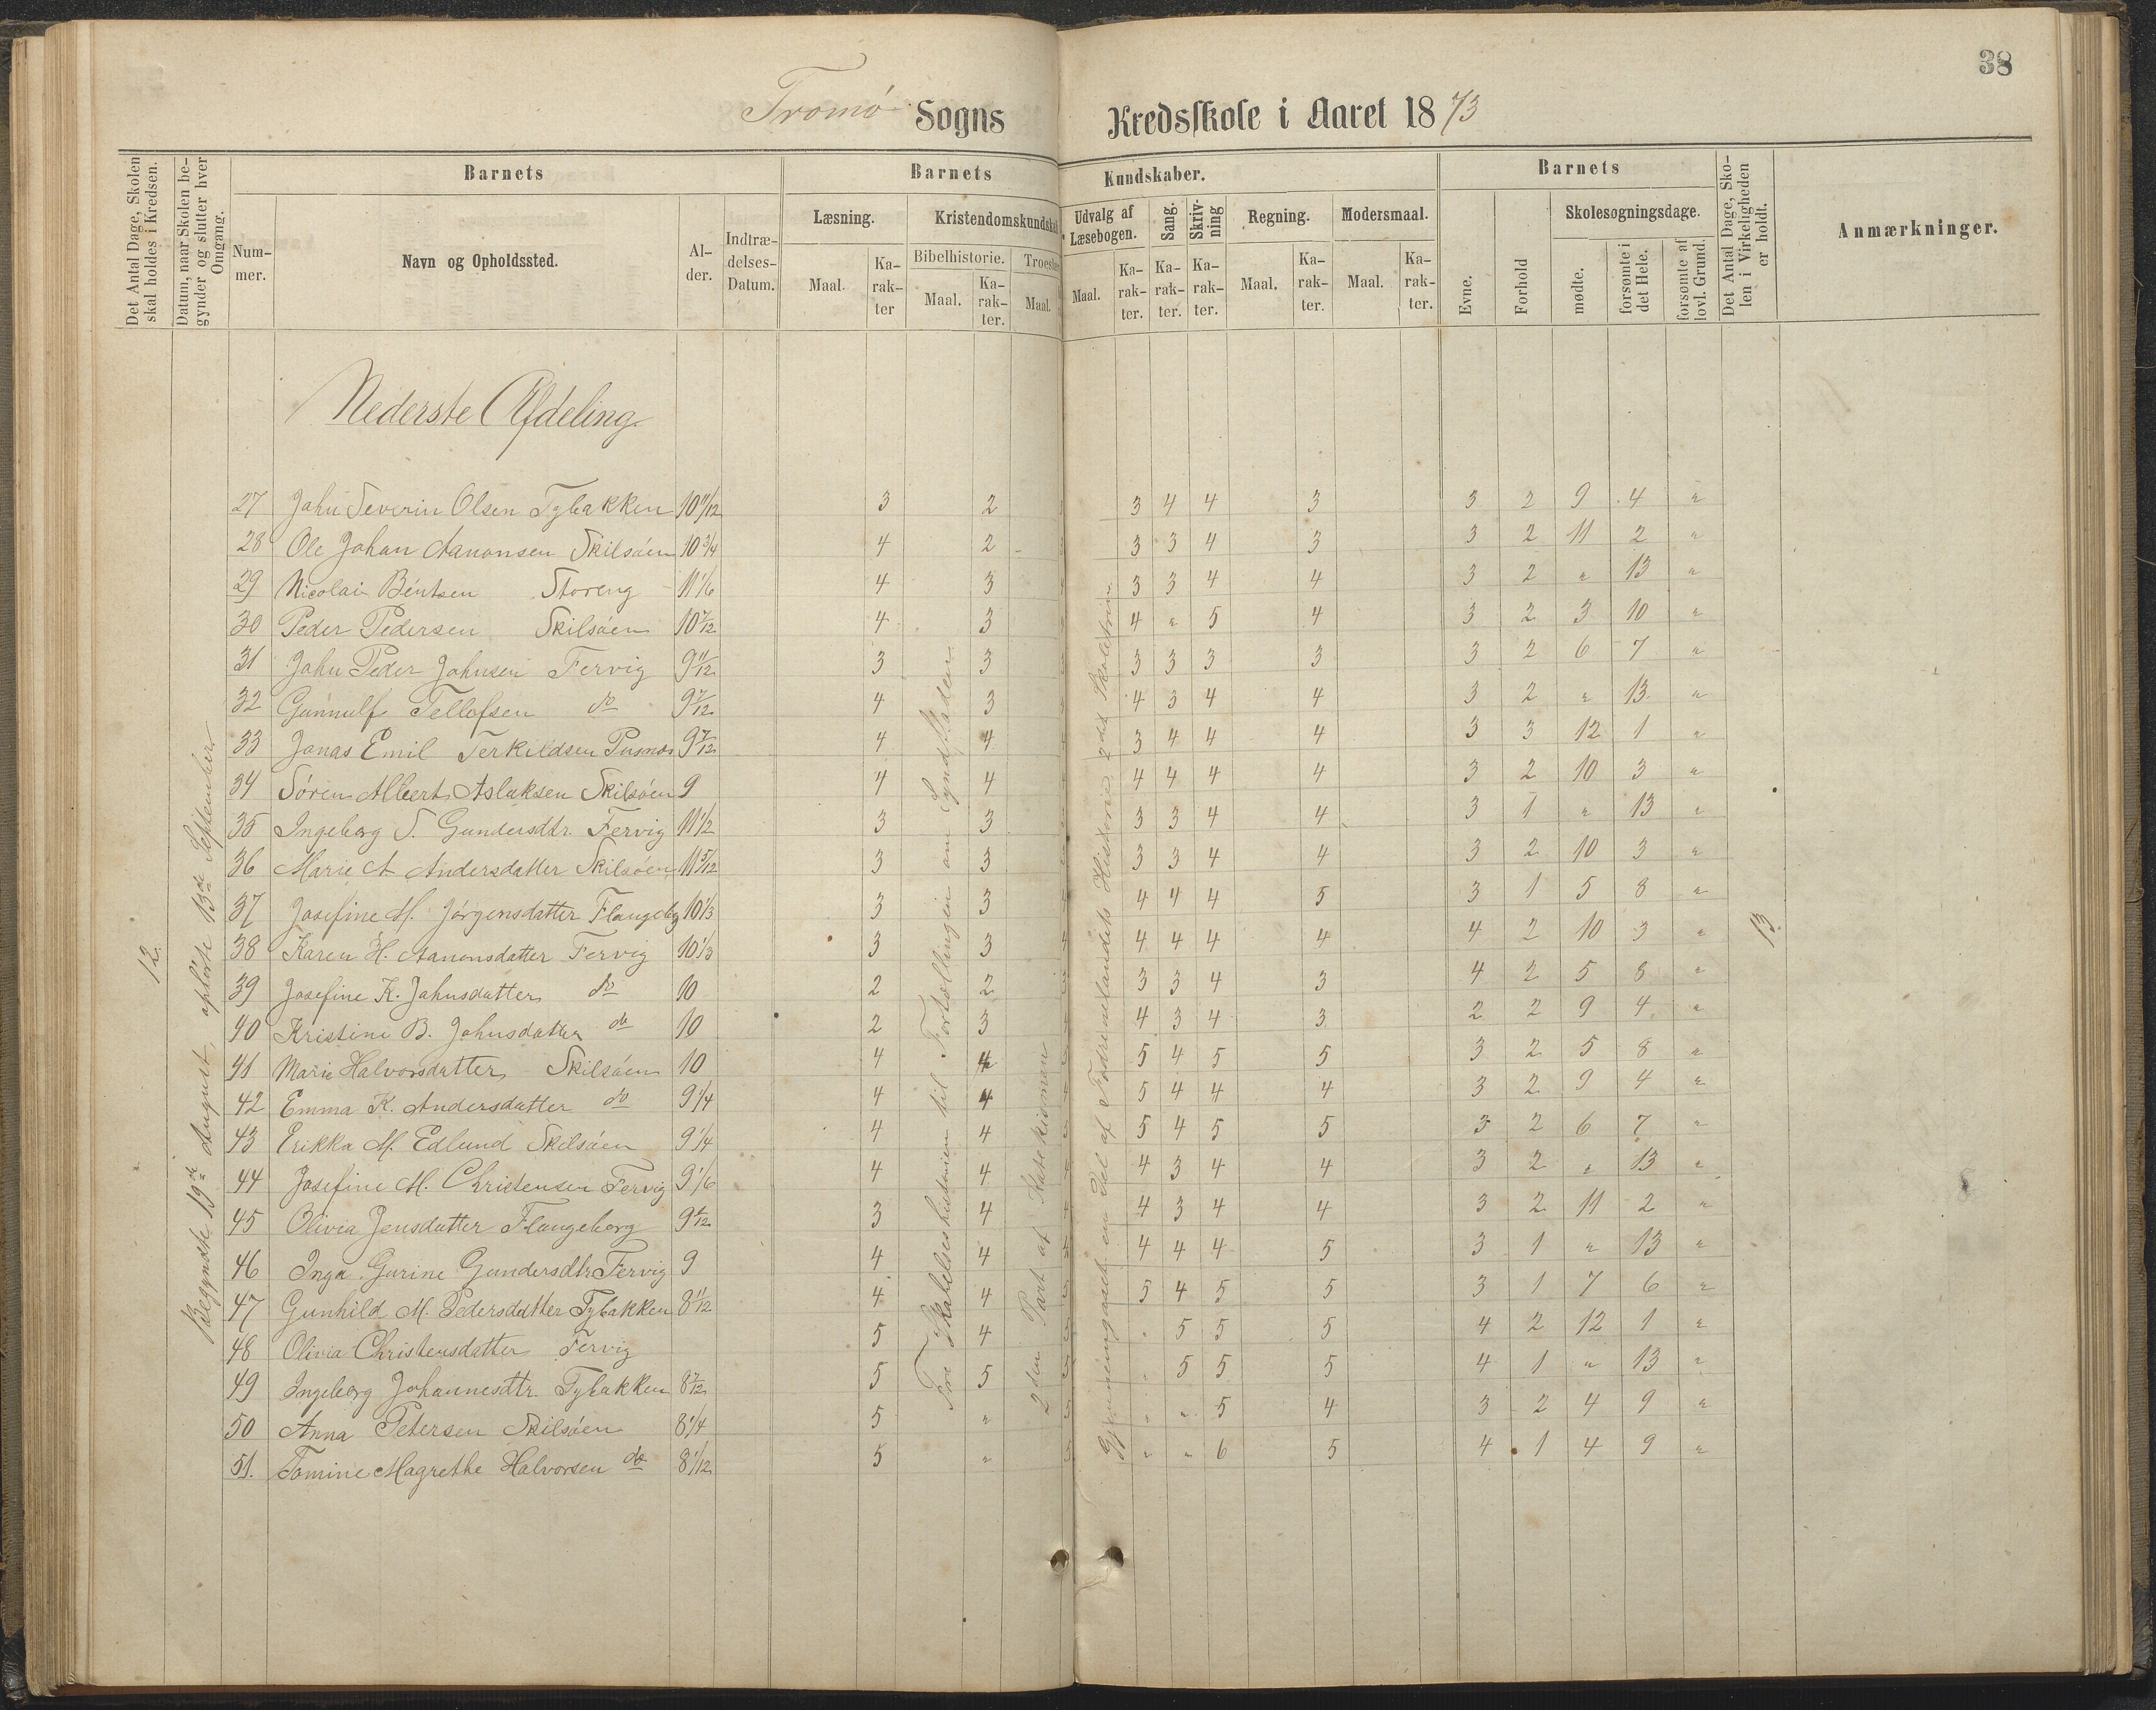 38
Tromø Sogns Kredsskole i Aaret 1873
Det Antal Dage, Skolen skal holdes i Kredsen.
Datum, naar Skolen begynder og slutter hver Omgang.
Barnets
Nummer.
Navn og Opholdssted.
Alder.
Indtrædelses-Datum.
Barnets Kundskaber.
Læsning.
Maal.
Karakter
Kristendomskundskab
Bibelhistorie.
Maal.
Karakter.
Troes
Maal.
Udvalg af Læsebogen.
Maal.
Karakter.
Sang.
Karakter.
Skrivning
Karakter.
Regning.
Maal.
Karakter.
Modersmaal.
Maal.
Karakter.
Barnets
Evne.
Forhold
Skolesøgningsdage.
mødte.
forsømte i det Hele.
forsømte af lovl. Grund.
Det Antal Dage, Skolen i Virkeligheden er holdt.
Anmærkninger.
Nederste Afdeling
12.
Begyndte 19de August, ophørte 13de September
Fra Skabelseshistorien til Fortællingen om Syndfloden
2den Part af Katekismen
Gjennemgaaet en Del af Fædrenelandets Historie 2det Skoletrin
13.
27 Jahn Severin Olsen Tybakken 10 11/12 3 2 3 4 4 3 3 2 9 4 "
28 Ole Johan Aanonsen Skilsøen 10 3/4 4 2 3 3 4 3 3 2 11 2 "
29 Nicolai Bentsen Storeng 11 1/6 4 3 3 3 4 4 3 2 " 13 "
30 Peder Pedersen Skilsøen 10 7/12 4 3 4 " 5 4 3 2 3 10 "
31 Jahn Peder Johnsen Fervig 9 11/12 3 3 3 3 3 3 3 2 6 7 "
32 Gunnulf Tellefsen do 9 7/12 4 3 4 3 4 4 3 2 " 13 "
33 Jonas Emil Terkildsen Pusnes 9 7/12 4 4 3 4 4 4 3 3 12 1 "
34 Søren Albert Aslaksen Skilsøen 9 4 4 4 4 4 4 3 2 10 3 "
35 Ingeborg S. Gundersdtr. Fervig 11 1/2 3 3 3 3 4 4 3 1 " 13 "
36 Marie A Andersdatter Skilsøen 11 5/12 3 3 3 3 4 4 3 2 10 3 "
37 Josefine M. Jørgensdatter Flangebg 10 1/3 3 3 4 4 4 5 3 1 5 8 "
38 Karen H. Aanonsdatter Fervig 10 1/3 3 3 4 4 4 4 4 2 10 3 "
39 Josefine K. Jahnsdatter do 10 2 2 3 3 4 3 4 2 5 8 "
40 Kristine B. Johnsdatter do 10 2 3 4 3 4 3 2 2 9 4 "
41 Marie Halvorsdatter Skilsøen 10 4 4 5 4 5 5 3 2 5 8 "
42 Emma K. Andersdatter do 9 1/4 4 4 5 4 4 4 3 2 9 4 "
43 Erikka M. Edlund Skilsøen 9 1/4 4 4 5 4 5 5 3 2 6 7 "
44 Josefine M. Christensen Fervig 9 1/6 4 4 4 3 4 4 3 2 " 13 "
45 Olivia Jensdatter Flangeborg 9 1/12 3 4 4 3 4 4 3 2 11 2 "
46 Inga Gurine Gundersdtr. Fervig 9 4 4 4 4 4 5 3 1 " 13 "
47 Gunhild M. Pedersdatter Tybakken 8 11/12 4 4 5 4 5 5 3 1 7 6 "
48 Olivia Christensdatter Fervig 5 4 " 5 5 5 4 2 12 1 "
49 Ingeborg Johannesdtr. Tybakken 8 7/12 5 5 " 5 5 5 4 1 " 13 "
50 Anna Petersen Skilsøen 8 1/4 5 " " " 5 4 3 2 4 9 "
51. Tomine Magrethe Halvorsen do 8 1/12 5 " " " 6 5 4 1 4 9 "